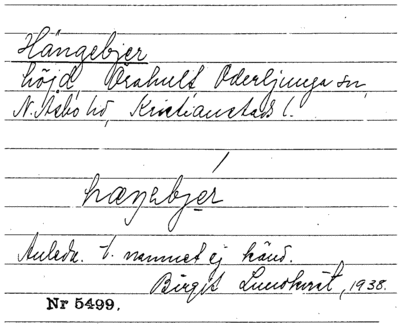 Hängebjer
höjd, Örahult Oderljunga sn,
N. Åsbo hd, Kristianstads l.
hæŋebjér
Anledn. t. namnet ej känd.
Birgit Lundkvist, 1938.
Nr 5499.